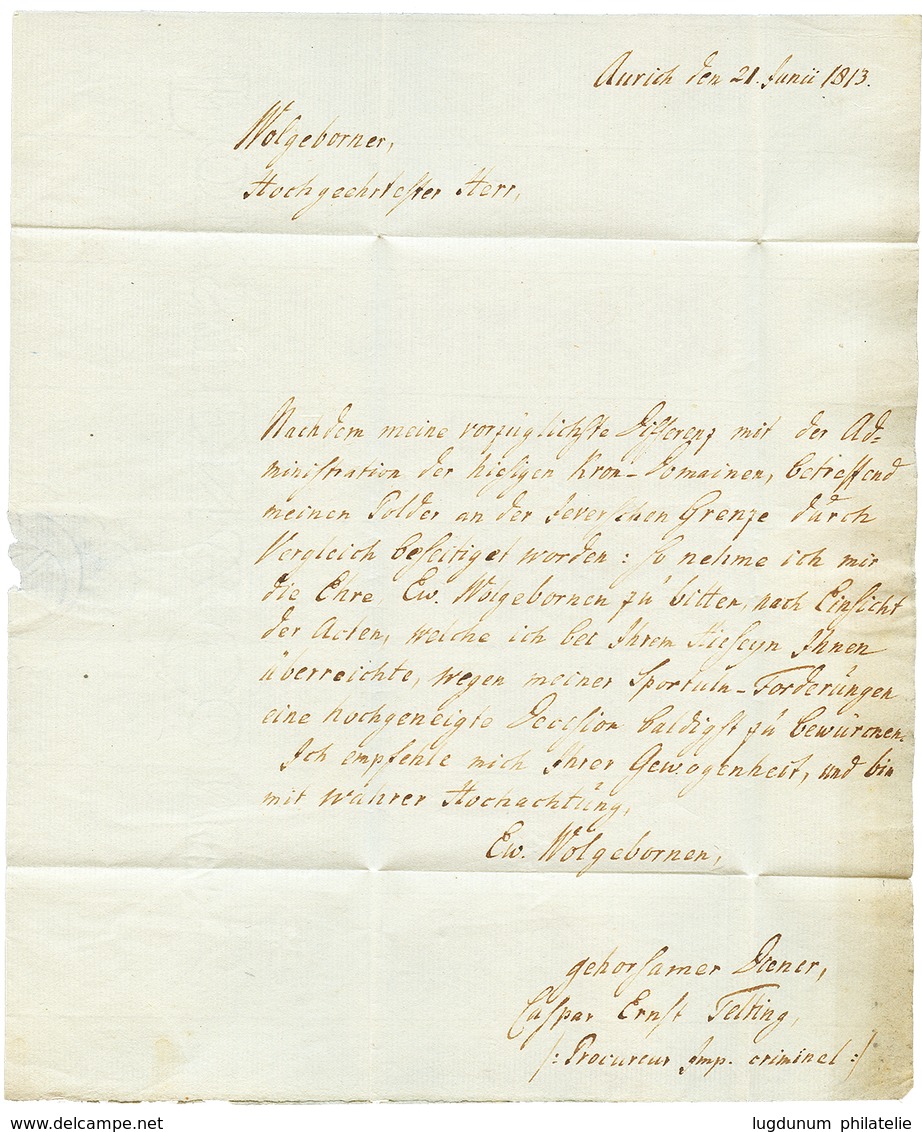 Aurich den 21. Junii 1813.
Wolgeborner,
Hochgeehrtester Herr,
Nachdem meine vorzüglichste Differenz mit der Ad=
ministration der hiesigen Kron-Domainen, betreffend
meinen Polder an der Jeverschen Grenze durch
Vergleich beseitiget worden: so nehme ich mir
die Ehre, Ew. Wolgebornen zu bitten, nach Einsicht
der Acten, welche ich bei Ihrem Hieseyn Ihnen
überreichte, wegen meiner Sportuln-Forderungen
eine hochgeneigte Decision baldigst zu bewürcken.
Ich empfehle mich Ihrer Gewogenheit, und bin
mit wahrer Hochachtung,
Ew. Wolgebornen,
gehorsamer Diener,
Caspar Ernst Telting,
/: Procureur Imp. criminel :/
www.delcampe.net
lugdunum philatelie